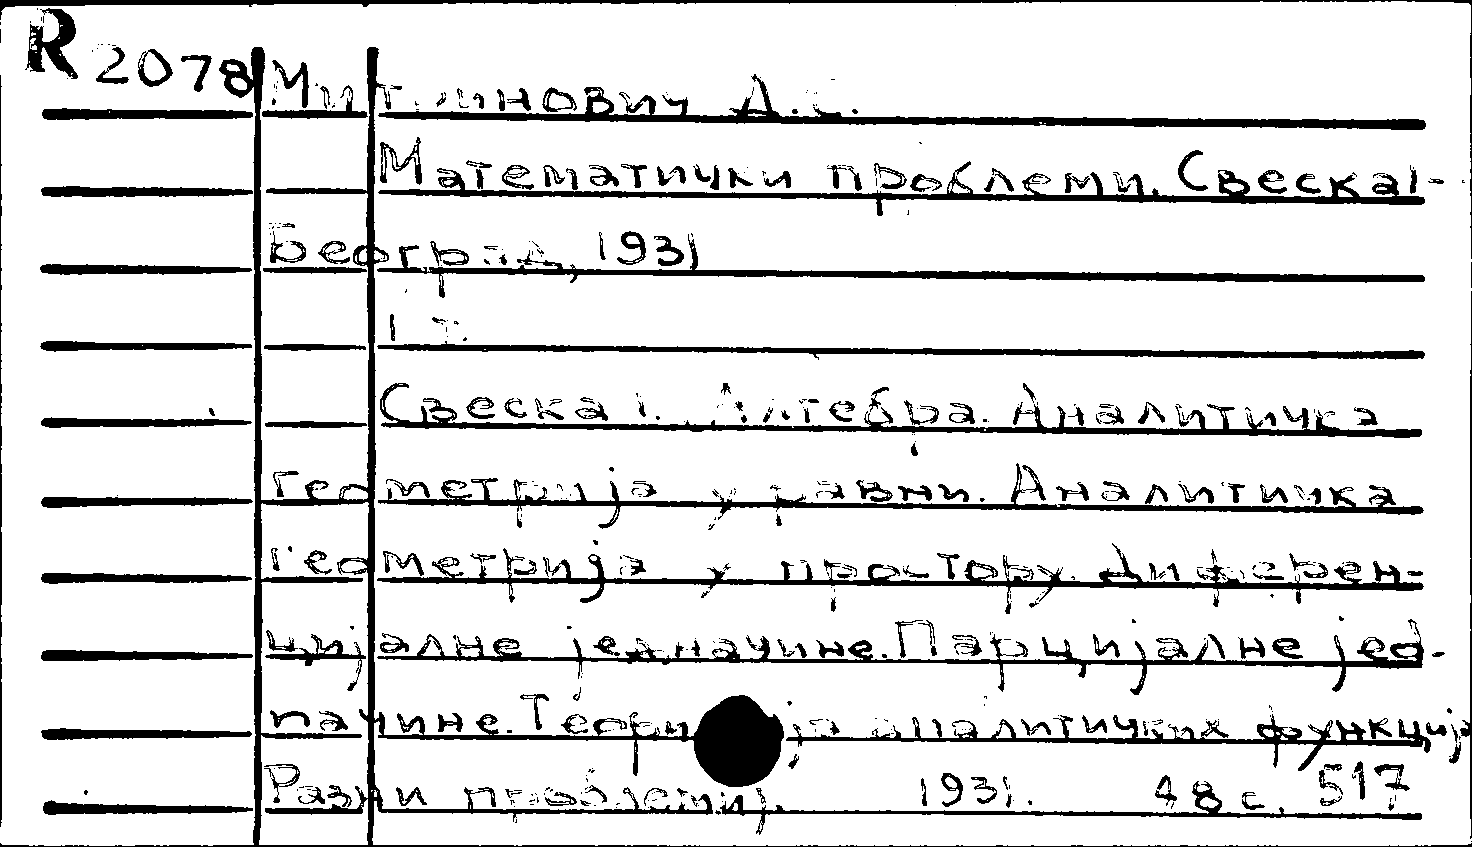 R 2078 Митриновић Д.С.
Математички проблеми. Свеска 1-
Београд, 1931
1 т.
Свеска 1. Алгебра. Аналитичка
геометрија у равни. Аналитичка
геометрија у простору. Диферен-
цијалне једначине. Парцијалне јед-
начине. Теорија аналитичких функција
Разни проблеми. 1931. 48 с. 517